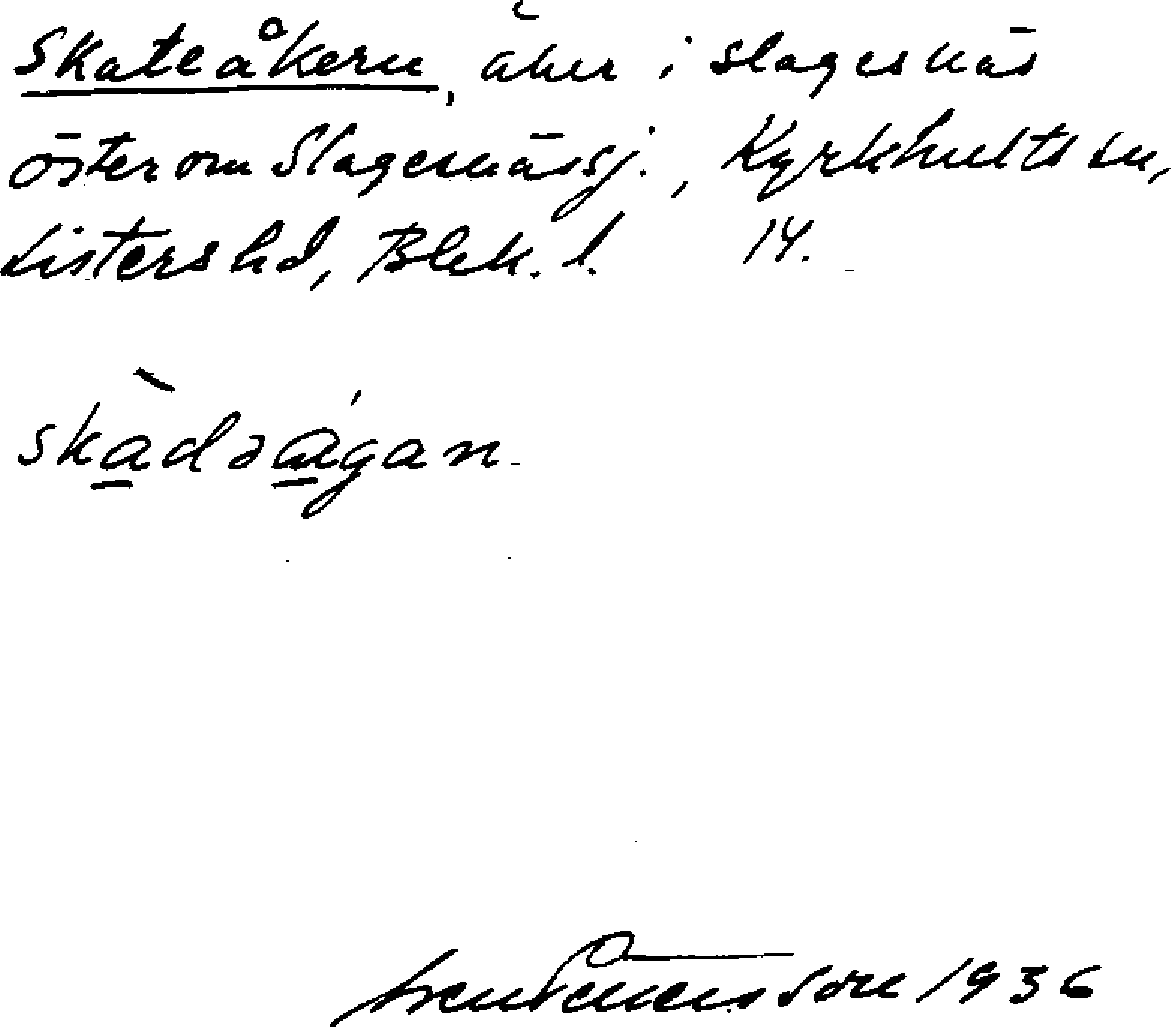 Skateåkern, åker i Slagesnäs
öster om Slagesnässj., Kyrkhults sn,
Listers hd, Blek. l. 14.
skàdəágan.
1936